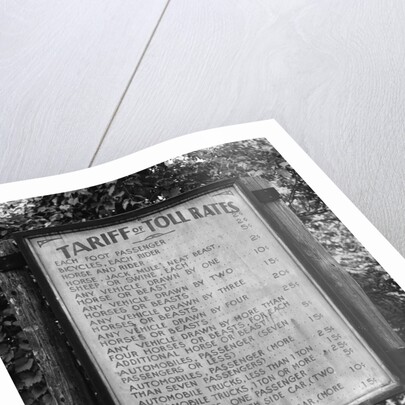 TARIFF OF TOLL RATES
EACH FOOT PASSENGER 2¢
BICYCLES, EACH RIDER 5¢
HORSE AND RIDER
HORSE, OR MULE, NEAT BEAST,
SHEEP, OR EACH
ANY VEHICLE DRAWN BY ONE
HORSE OR BEAST 10¢
ANY VEHICLE DRAWN BY TWO
HORSES OR BEASTS 15¢
ANY VEHICLE DRAWN BY THREE
HORSES OR BEASTS 20¢
ANY VEHICLE DRAWN BY FOUR
HORSES OR BEASTS
ANY VEHICLE DRAWN BY MORE THAN
FOUR HORSES OR BEASTS FOR EACH
ADDITIONAL HORSE OR BEAST
AUTOMOBILES, PASSENGER (SEVEN
PASSENGERS OR LESS)
AUTOMOBILES, PASSENGER (MORE
THAN SEVEN PASSENGERS)
AUTOMOBILE TRUCKS, LESS THAN 1 TON
AUTOMOBILE TRUCKS, 1 TON OR MORE
ONE PASSENGER
SIDE CAR, (TWO
CAR, (MORE